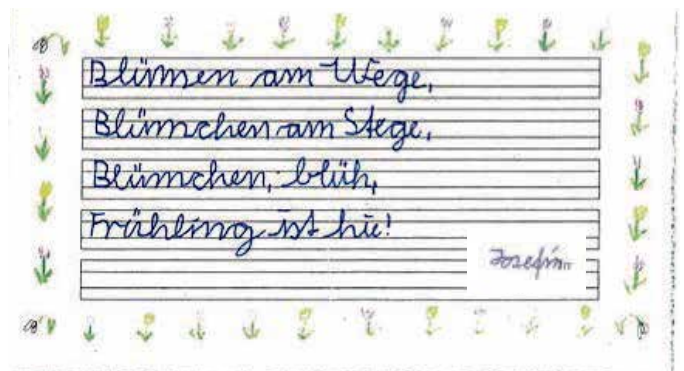 Blümen am Wege,
Blümchen am Stege,
Blümchen, blüh,
Frühling ist hie!
Josefin